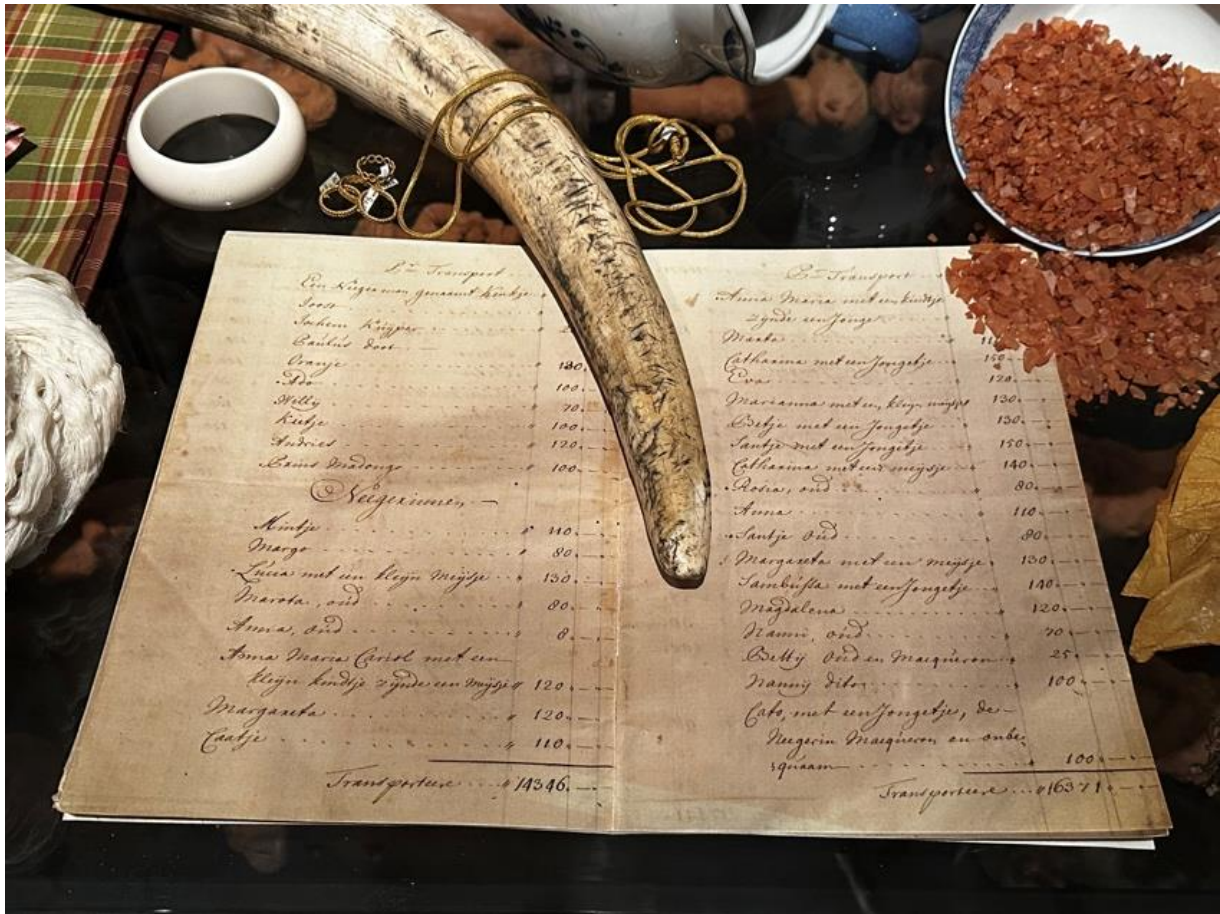 Pr Transport
Een Neger man, genaamt Kintje
Joost
Jochem Kuyper
Paulus door
Oranje 130.
Ado 100.
Welly 70.
Keetje 100.
Andries 120.
Bains Madongo 100.
Negerinnen,
Mintje " 110.
Margo " 80.
Lucia met een kleijn Meijsje " 130.
Marota, oud " 80.
Anna, oud " 8.
Anna Maria Cariol met een
kleijn kindtje zijnde een Meijsje " 120.
Margareta " 120.
Caatje " 110.
Transporteere " 14346.
Pr Transport
Anna Maria met een kindtje
zijnde een Jonge
Maria 11
Catharina met een Jongetje 150.
Eva 120.
Marianna met een kleijn meijsje 130.
Betje met een Jongetje 130.
Santje met een Jongetje 150.
Catharina met een meijsje 140.
Rosia, oud 80.
Anna 110.
Santje oud 80.
Margareta met een meijsje 130.
Sambussa met een Jongetje 140.
Magdalena 120.
Nanni, oud 70
Bettij oud en Macqueron 25.
Nannij dito 100.
Cato, met een Jongetje, de
Neegerin Macqueron en onbe,
squaam 100.
Transporteere " 16371.